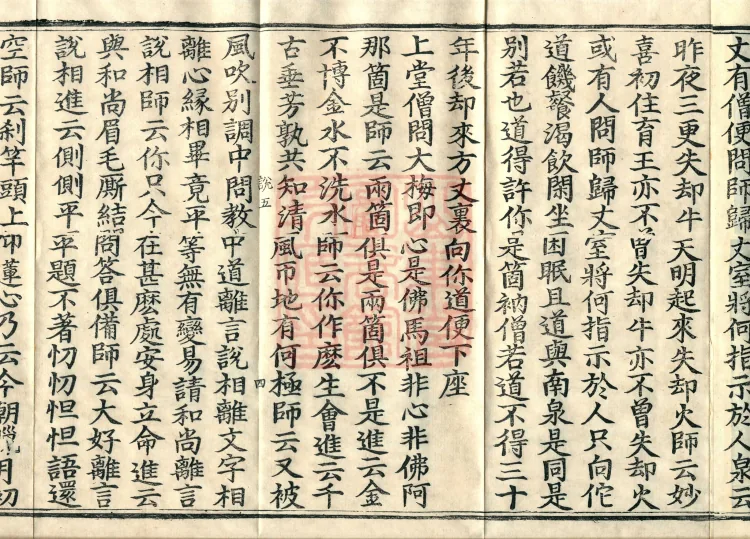 丈有僧便問師歸丈室將何指示於人泉云
昨夜三更失却牛天明起來失却火師云妙
喜初住育王亦不曾失却牛亦不曾失却火
或有人問師歸丈室將何指示於人只向佗
道饑餐渴飲閑坐困眠且道與南泉是同是
別若也道得許你是箇衲僧若道不得三十
年後却來方丈裏向你道便下座
上堂僧問大梅即心是佛馬祖非心非佛阿
那箇是師云兩箇俱是兩箇俱不是進云金
不博金水不洗水師云你作麽生會進云千
古垂芳孰共知清風帀地有何極師云又被
說五 四
風吹別調中問教中道離言說相離文字相
離心緣相畢竟平等無有變易請和尚離言
說相師云你只今在甚麽處安身立命進云
與和尚眉毛厮結問答俱備師云大好離言
說相進云側側平平題不著忉忉怛怛語還
空師云刹竿頭上仰蓮心乃云今朝月初